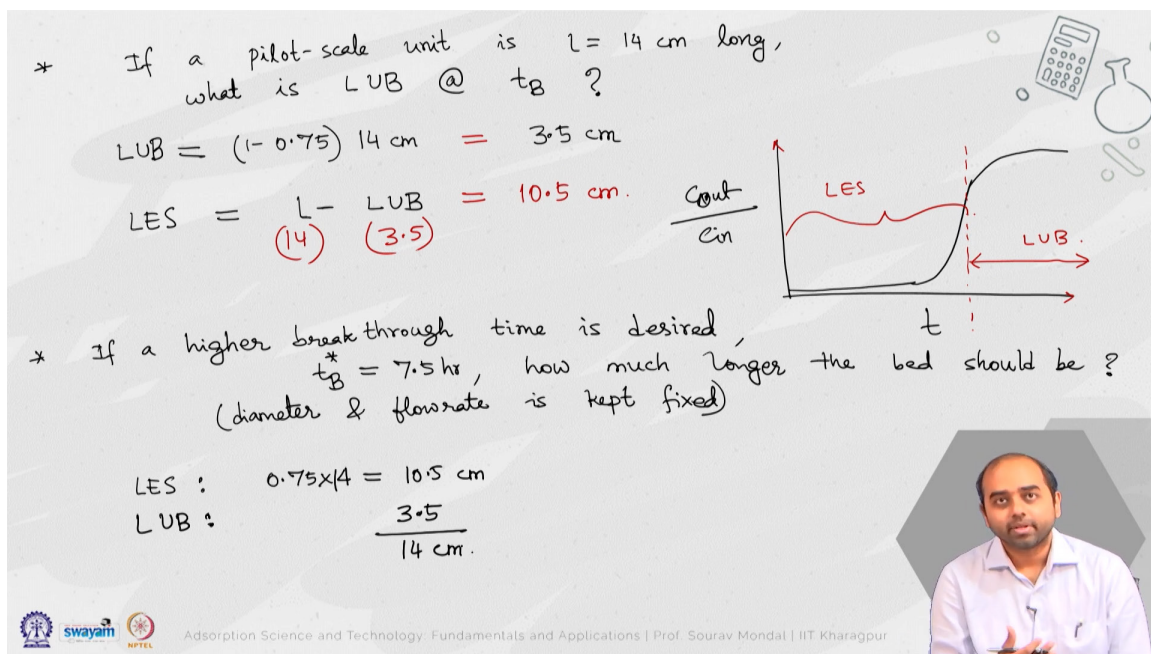 * If a pilot-scale unit is l = 14 cm long,
what is LUB @ tB ?
LUB = (1- 0.75) 14 cm = 3.5 cm
LES = L- LUB = 10.5 cm.
(14) (3.5)
Cout
Cin
LES
LUB.
t
* If a higher breakthrough time is desired,
tB* = 7.5 hr, how much longer the bed should be ?
(diameter & flowrate is kept fixed)
LES : 0.75x14 = 10.5 cm
LUB : 3.5
14 cm.
swayam
NPTEL
Adsorption Science and Technology: Fundamentals and Applications | Prof. Sourav Mondal | IIT Kharagpur